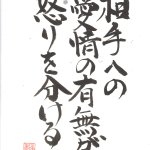 相手への
愛情の有無が
怒りを分ける